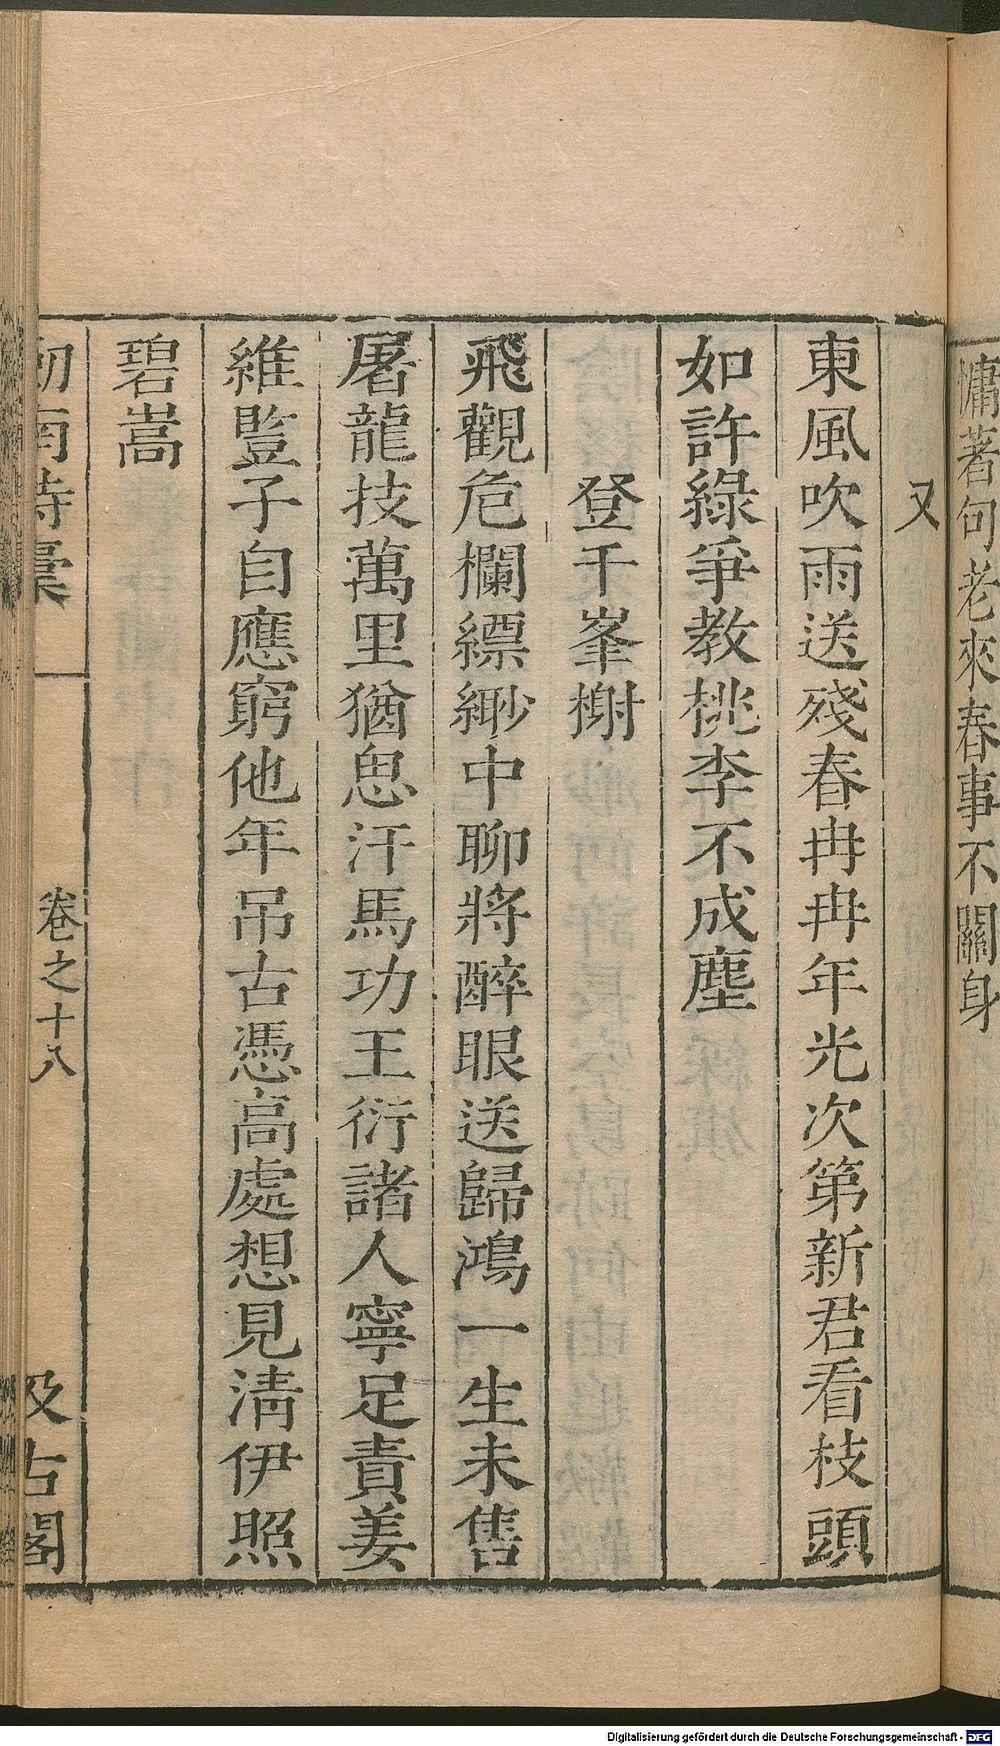 慵著句老來春事不關身
又
東風吹雨送殘春冉冉年光次第新君看枝頭
如許綠爭教桃李不成塵
登千峯榭
飛觀危欄縹緲中聊將醉眼送歸鴻一生未售
屠龍技萬里猶思汗馬功王衍諸人寧足責姜
維豎子自應窮他年吊古憑高處想見淸伊照
碧嵩
劎南詩稾
卷之十八
汲古閣
Digitalisierung gefördert durch die Deutsche Forschungsgemeinschaft - DFG